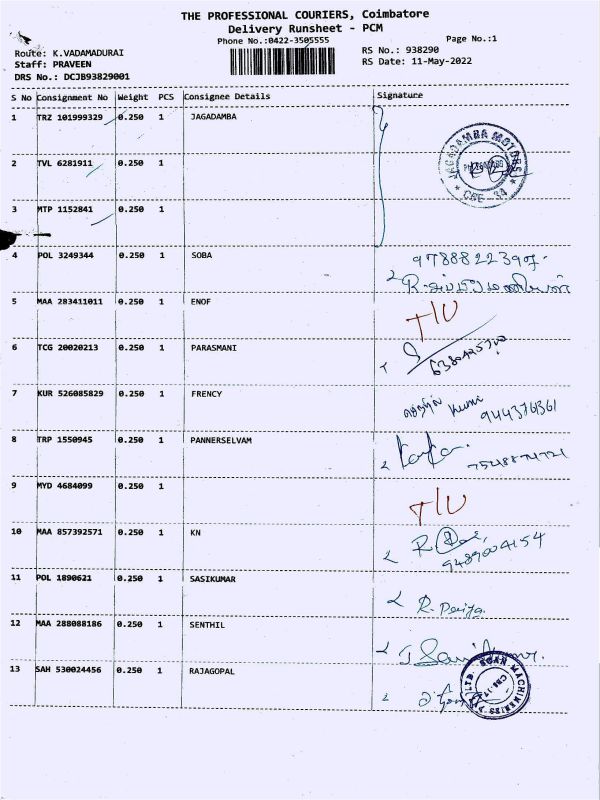 THE PROFESSIONAL COURIERS, Coimbatore
Delivery Runsheet - PCM
Phone No.:0422-3505555
Page No.:1
Route: K.VADAMADURAI
RS No.: 938290
Staff: PRAVEEN
RS Date: 11-May-2022
DRS No.: DCJB93829001
S No Consignment No Weight PCS Consignee Details Signature
1 TRZ 101999329 0.250 1 JAGADAMBA
JAGADAMBA MOTORS
CBE - 34
2 TVL 6281911 0.250 1
3 MTP 1152841 0.250 1
4 POL 3249344 0.250 1 SOBA
5 MAA 283411011 0.250 1 ENOF T/U
6 TCG 20020213 0.250 1 PARASMANI
7 KUR 526085829 0.250 1 FRENCY
944376361
8 TRP 1550945 0.250 1 PANNERSELVAM
9 MYD 4684099 0.250 1 T/U
10 MAA 857392571 0.250 1 KN
9489004154
11 POL 1890621 0.250 1 SASIKUMAR
R. Periya
12 MAA 288088186 0.250 1 SENTHIL
13 SAH 530024456 0.250 1 RAJAGOPAL
SCAN MACHINERIES